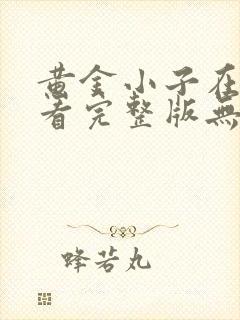 黄金小子在
看完整版無
蜂若丸